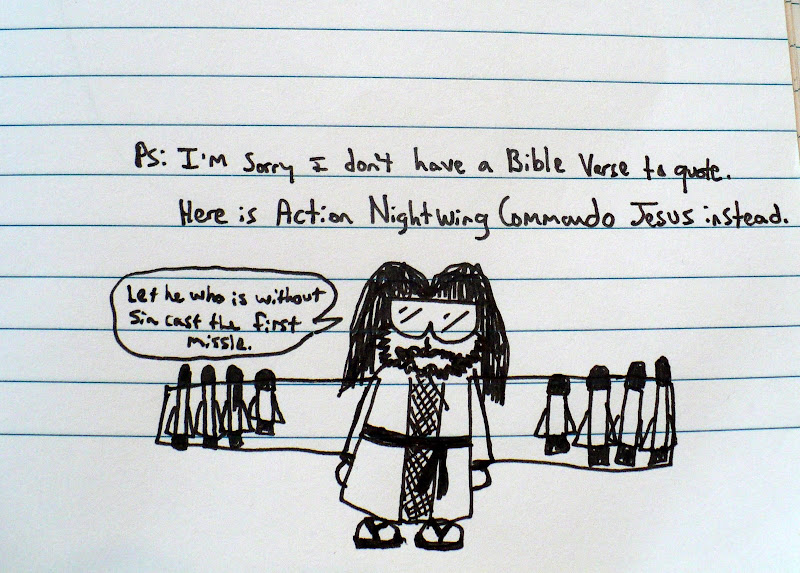 PS: I'm sorry I don't have a Bible Verse to quote.
Here is Action Nightwing Commando Jesus instead.
Let he who is without
Sin cast the first
missle.